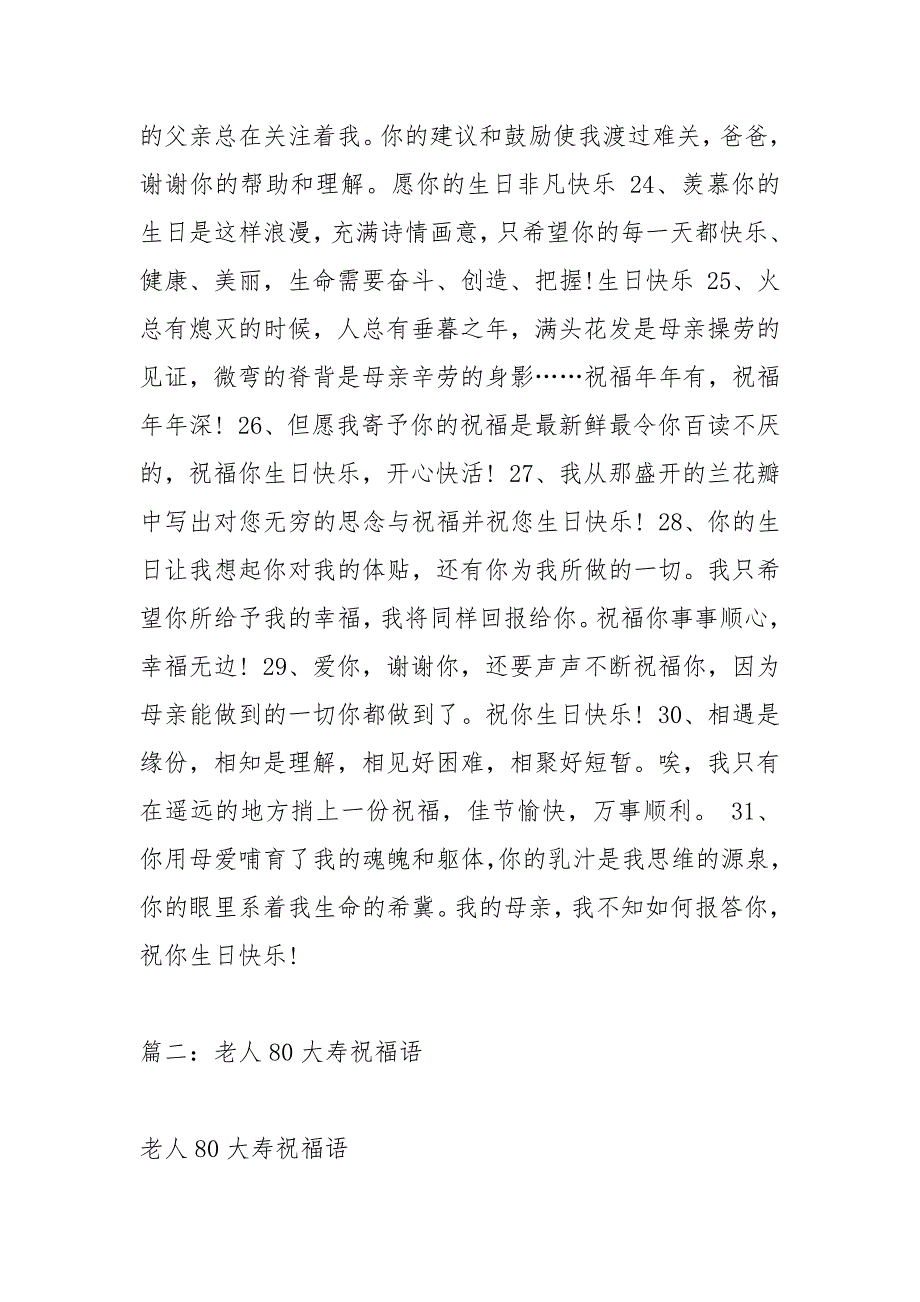 的父亲总在关注着我。你的建议和鼓励使我渡过难关，爸爸，
谢谢你的帮助和理解。愿你的生日非凡快乐 24、羡慕你的
生日是这样浪漫，充满诗情画意，只希望你的每一天都快乐、
健康、美丽，生命需要奋斗、创造、把握!生日快乐 25、火
总有熄灭的时候，人总有垂暮之年，满头花发是母亲操劳的
见证，微弯的脊背是母亲辛劳的身影……祝福年年有，祝福
年年深! 26、但愿我寄予你的祝福是最新鲜最令你百读不厌
的，祝福你生日快乐，开心快活! 27、我从那盛开的兰花瓣
中写出对您无穷的思念与祝福并祝您生日快乐! 28、你的生
日让我想起你对我的体贴，还有你为我所做的一切。我只希
望你所给予我的幸福，我将同样回报给你。祝福你事事顺心，
幸福无边! 29、爱你，谢谢你，还要声声不断祝福你，因为
母亲能做到的一切你都做到了。祝你生日快乐! 30、相遇是
缘份，相知是理解，相见好困难，相聚好短暂。唉，我只有
在遥远的地方捎上一份祝福，佳节愉快，万事顺利。 31、
你用母爱哺育了我的魂魄和躯体，你的乳汁是我思维的源泉，
你的眼里系着我生命的希冀。我的母亲，我不知如何报答你，
祝你生日快乐!
篇二：老人 80 大寿祝福语
老人 80 大寿祝福语